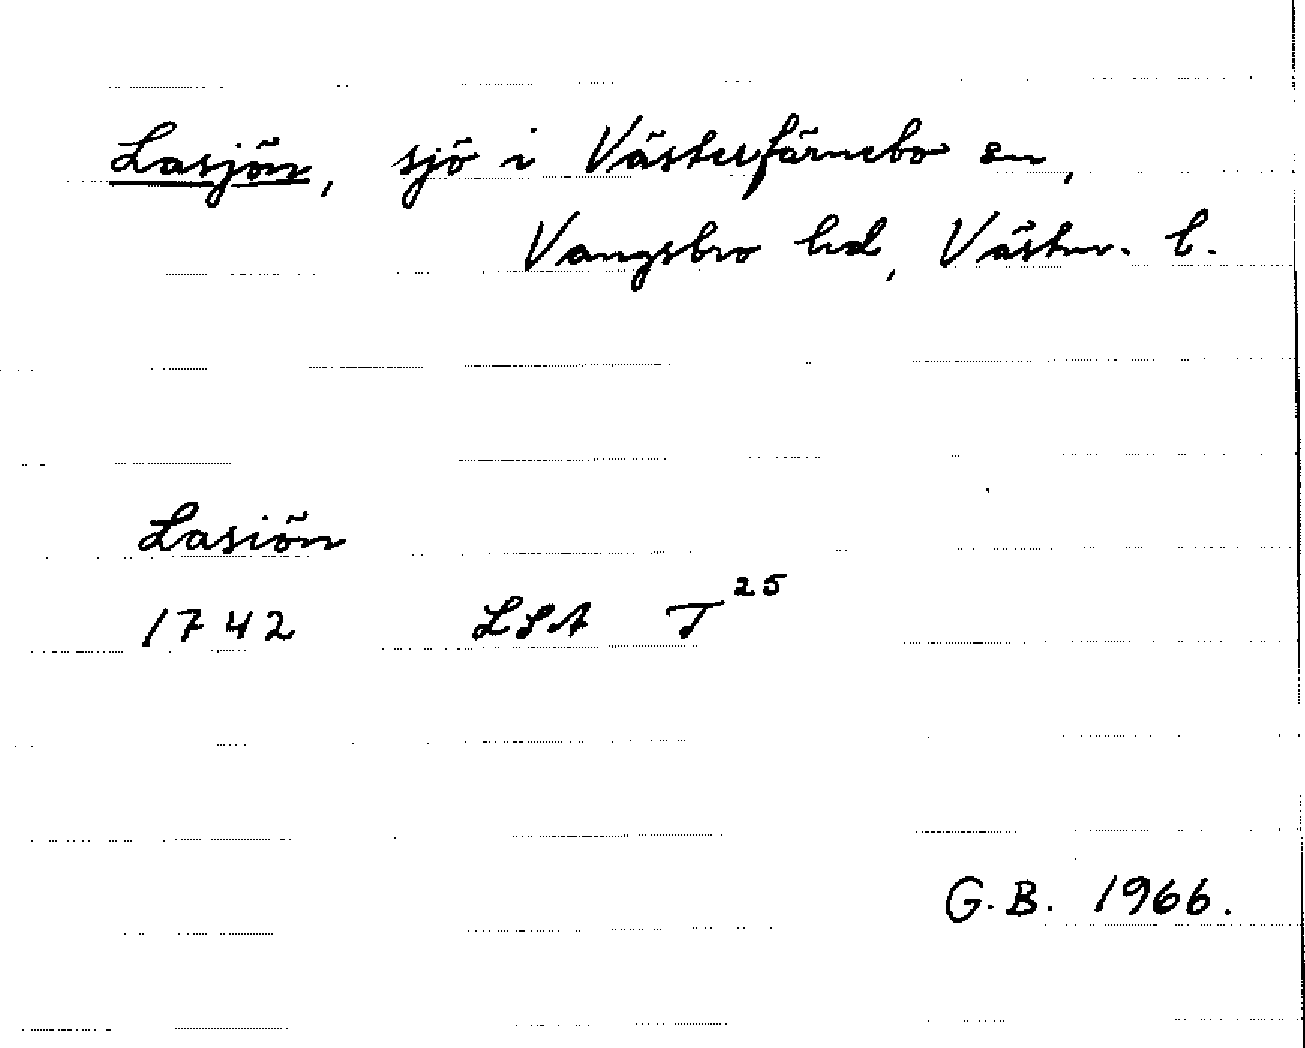 Lasjön, sjö i Västerfärnebo sn,
Vangsbro hd, Västm. l.
Lasiön
1742 LSA T25
G.B. 1966.